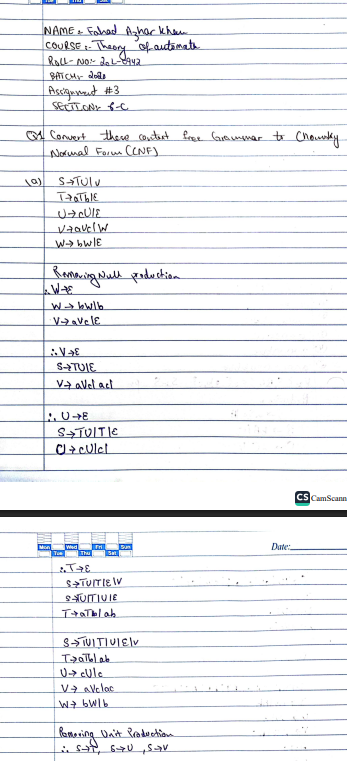 NAME: Fahad Azhar khan
COURSE:- Theory of automata
ROLL-NO:- 20L-0942
BATCH:- 2020
Assignment #3
SECTION:- 6-C
Q1 Convert these context free Grammar to Chomsky
Normal Form (CNF)
(a) S→TU|V
T→aTb|ε
U→cU|ε
V→aVc|W
W→bW|ε
Removing Null production
∴W→ε
W→bW|b
V→aVc|ε
∴V→ε
S→TU|ε
V→aVc|ac|
∴U→ε
S→TU|T|ε
U→cU|c|
CS CamScann
Mon Tue Wed Thu Fri Sat Sun
Date:
∴T→ε
S→TU|T|ε|V
S→TU|T|U|ε
T→aTb|ab
S→TU|T|U|ε|V
T→aTb|ab
U→cU|c
V→aVc|ac
W→bW|b
Removing Unit Production
∴S→T, S→U, S→V